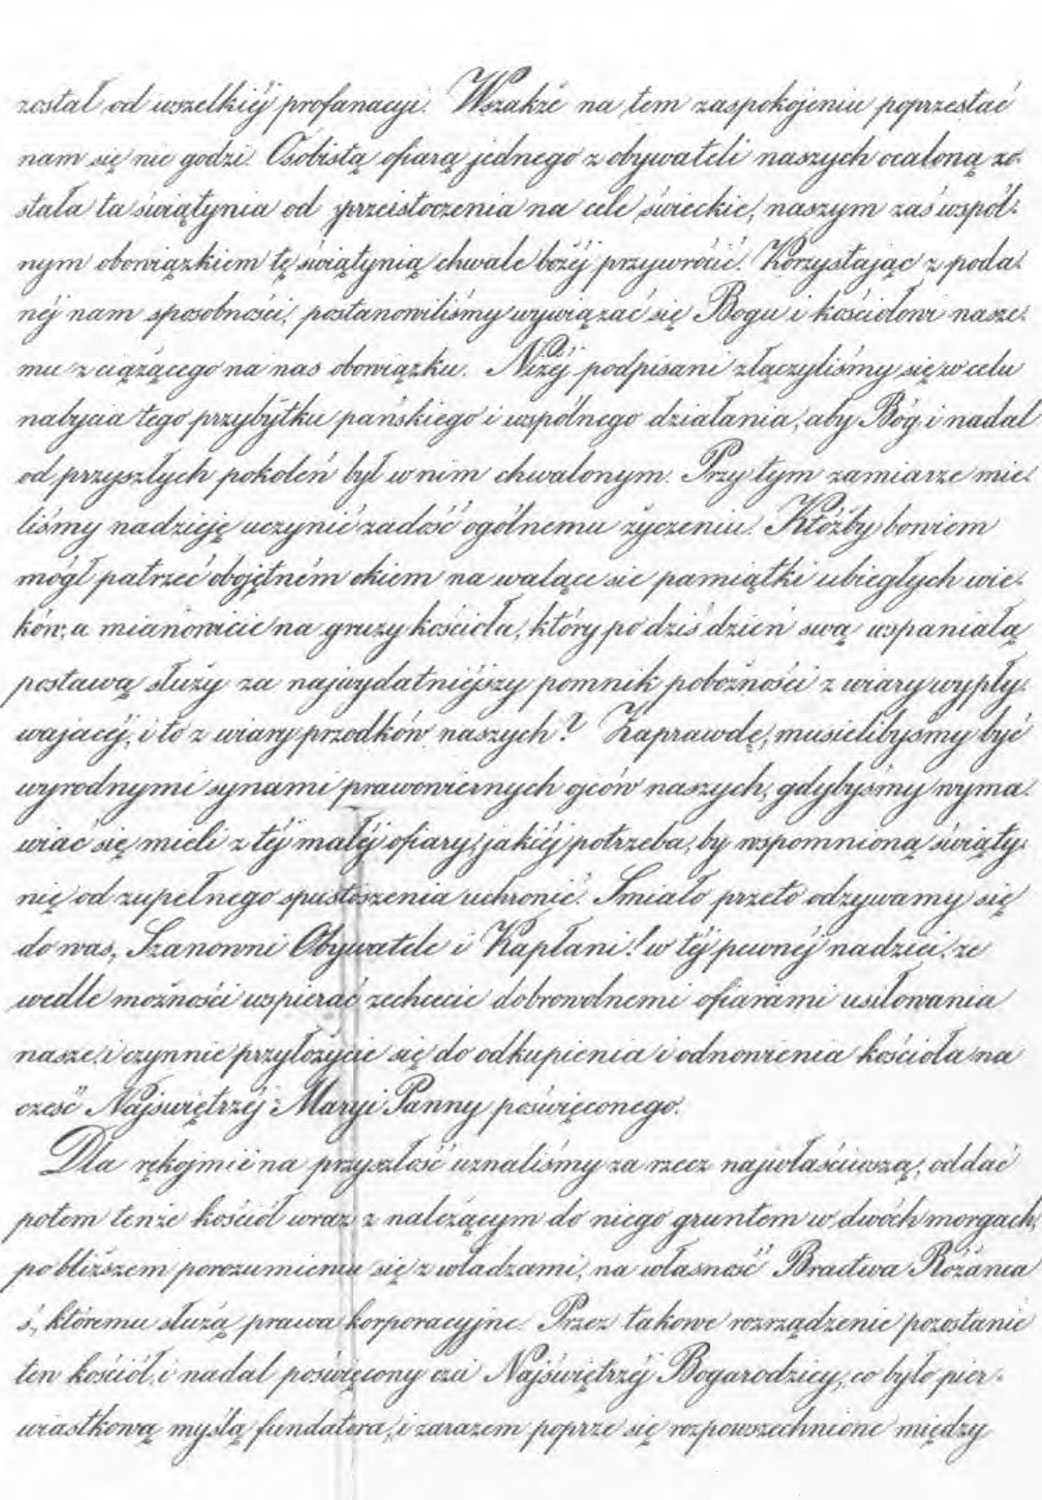 został od wszelkiéj profanacyi. Wszakże na tem zaspokojeniu poprzestać
nam się nie godzi. Osobistą ofiarą jednego z obywateli naszych ocaloną zo-
stała ta świątynia od przeistoczenia na cele świeckie, naszym zaś wspól-
nym obowiązkiem tę świątynią chwale bożéj przywrócić. Korzystając z poda-
néj nam sposobności, postanowiliśmy wywiązać się Bogu i kościołowi nasze-
mu z ciążącego na nas obowiązku. Niżéj podpisani złączyliśmy się w celu
nabycia tego przybytku pańskiego i wspólnego działania, aby Bóg i nadal
od przyszłych pokoleń był w nim chwalonym. Przy tym zamiarze mie-
liśmy nadzieję uczynić zadość ogólnemu życzeniu. Któżby bowiem
mógł patrzeć obojętném okiem na walące sie pamiątki ubiegłych wie-
ków, a mianowicie na gruzy kościoła, który po dziś dzień swą wspaniałą
postawą służy za najwydatniéjszy pomnik pobożności z wiary wypły-
wającéj, i to z wiary przodków naszych? Zaprawdę, musielibyśmy być
wyrodnymi synami prawowiernych ojców naszych, gdybyśmy wyma-
wiać się mieli z téj małéj ofiary, jakiéj potrzeba, by wspomnioną świąty-
nię od zupełnego spustoszenia uchronić. Śmiało przeto odzywamy się
do was, Szanowni Obywatele i Kapłani! w téj pewnéj nadziei, że
wedle możności wspierać zechcecie dobrowolnemi ofiarami usiłowania
nasze i czynnie przyłożycie się do odkupienia i odnowienia kościoła na
cześć Najświętrzéj Maryi Panny poświęconego.
Dla rękojmii na przyszłość uznaliśmy za rzecz najwłaściwszą, oddać
potem tenże kościół wraz z należącym do niego gruntem w dwóch morgach,
po bliższem porozumieniu się z władzami, na własność Bractwa Różańca
ś., któremu służą prawa korporacyjne. Przez takowe rozrządzenie pozostanie
ten kościół i nadal poświęcony czci Najświętrzéj Bogarodzicy, co było pier-
wiastkową myślą fundatora, i zarazem poprze się rozpowszechnione między